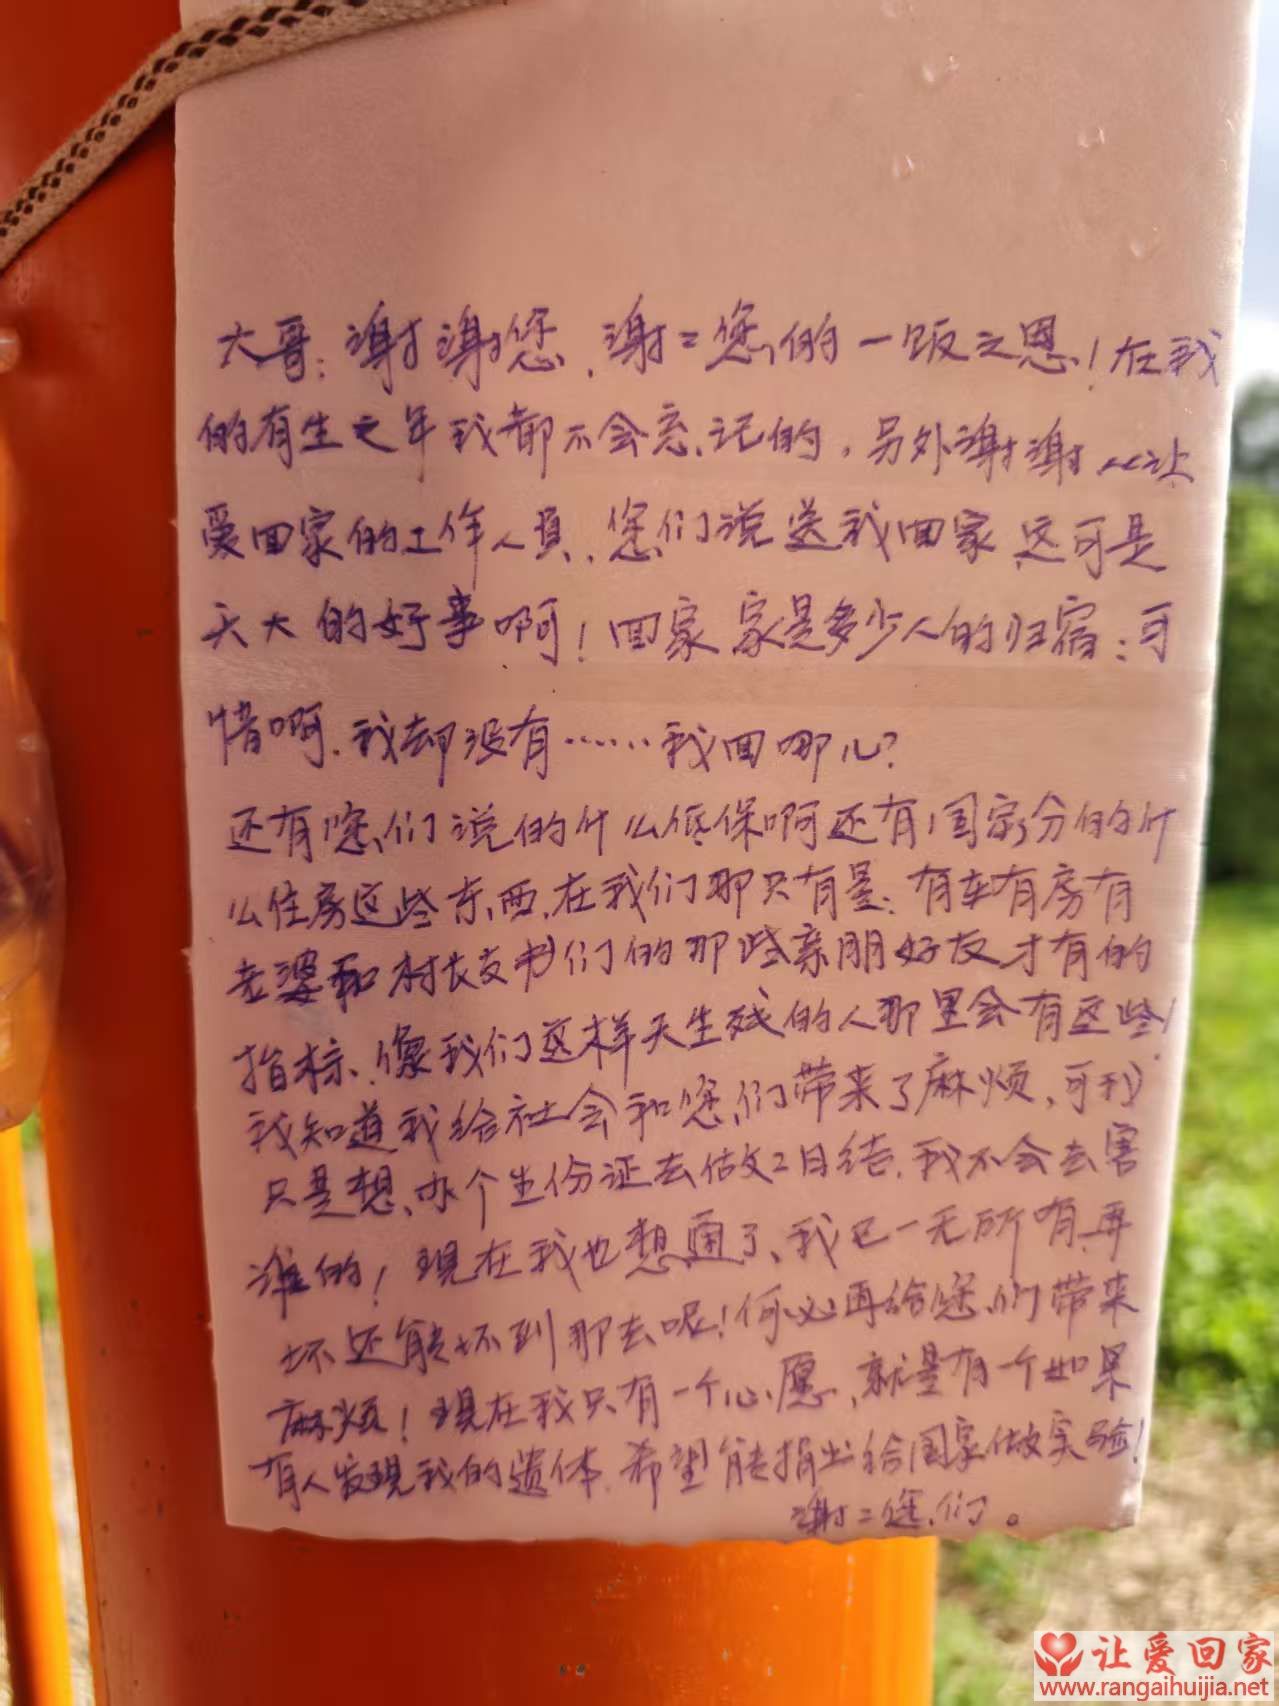 大哥：谢谢您，谢二您的一饭之恩！在我
的有生之年我都不会忘记的，另外谢谢"让
爱回家的工作人员，您们说送我回家，这可是
天大的好事啊！回家，家是多少人的归宿：可
惜啊，我却没有……我回哪儿？
还有您们说的什么低保啊还有国家分的什
么住房这些东西，在我们那只有是：有车有房有
老婆和村长支书们的那些亲朋好友才有的
指标、像我们这样天生残的人那里会有这些！
我知道我给社会和您们带来了麻烦，可我
只是想，办个生份证去做日结，我不会去害
谁的！现在我也想通了、我已一无所有，再
坏还能坏到那去呢！何必再给您们带来
麻烦！现在我只有一个心愿，就是有一个如果
有人发现我的遗体，希望能捐出给国家做实验！
谢二您们。
让爱回家
www.rangaihuijia.net